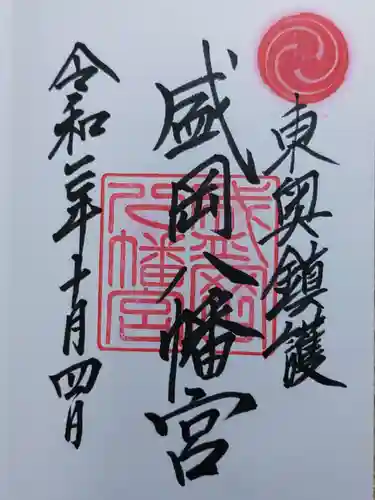 東奥鎮護
盛岡八幡宮
令和二年十月四日
盛岡八幡宮